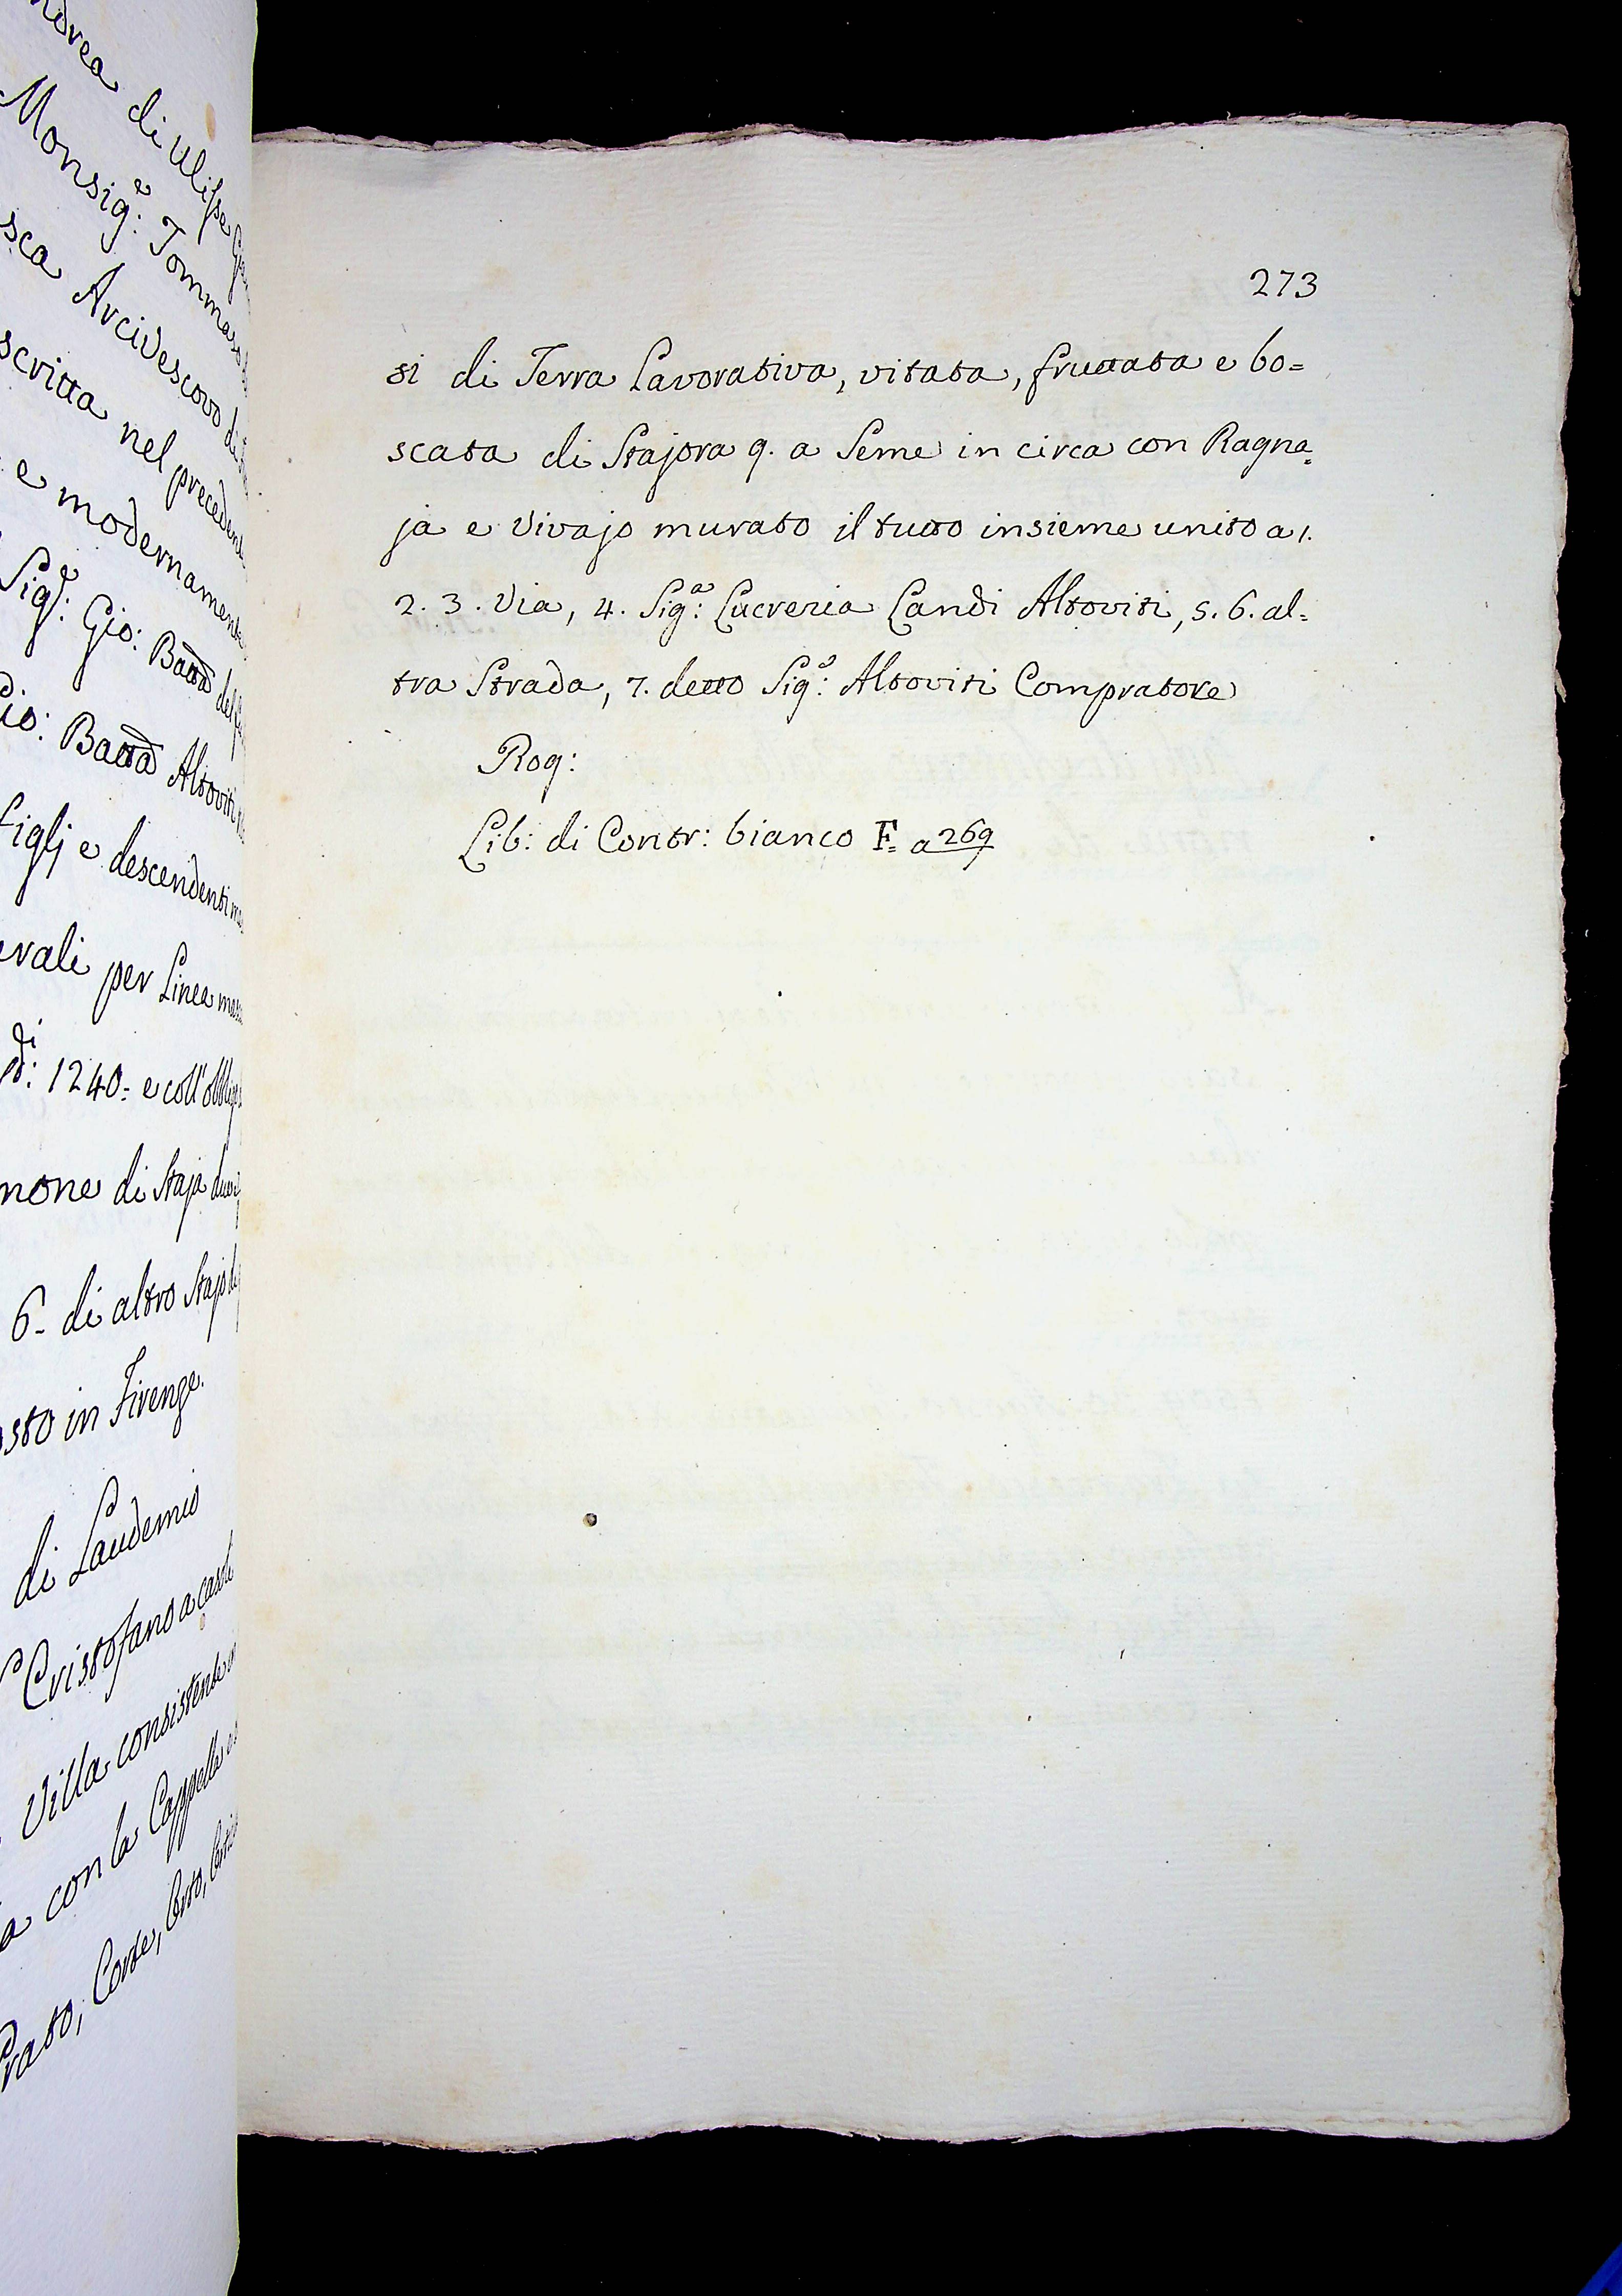 ndrea di Ulisse
Monsig.e: Tommaso
sca Arcivescovo di
scritta nel precedent
e modernamente
Sig.e: Gio: Batta del
io: Batta Altoviti
figlj e descendenti
rali per Linea
di: 1240= e coll'obblig
none di Staja
6= di altro Stajo
sto in Firenze.
di Laudemio
Cristofano a
Villa consistente
a con la Cappella
Prato, Corte, Orto,
273
ti di Terra Lavorativa, vitata, fruttata e bo=
scata di Stajora 9. a Seme in circa con Ragna=
ja e Vivajo murato il tutto insieme unito a 1.
2. 3. Via, 4. Sig.a: Lucrezia Landi Altoviti, 5. 6. al=
tra Strada, 7. detto Sig.e: Altoviti Compratore
Rog:
Lib: di Contr: bianco F= a 269